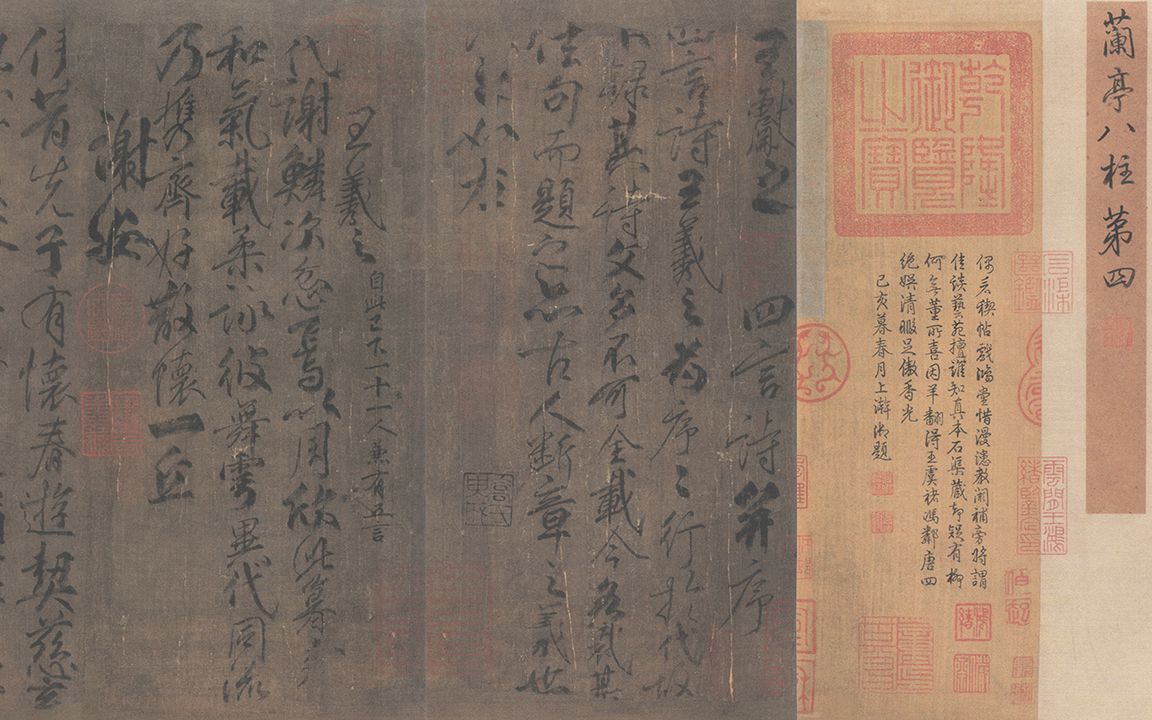 蘭亭八柱第四
乾隆御覽之寶
偶㝓稧帖戲鴻堂惜漫漶教閑補旁將謂
佳談藝苑擅誰知真本石渠蔵却緣有柳
何無董所喜因羊翻得王虞褚馮鄰唐四
絕娯清暇足傲香光
己亥暮春月上澣御題
王獻之四言詩并序
四言詩王羲之為序〻行於代故
不錄其詩文多不可全載今各裁其
佳句而題之亦古人断章之義也
如左
王羲之 自此已下一十一人兼有五言
代謝鱗次忽焉以周欣此暮春
和氣載柔詠彼舞雩異代同流
乃携齊好散懷一丘
謝安
伊昔先子有懷春遊契茲言